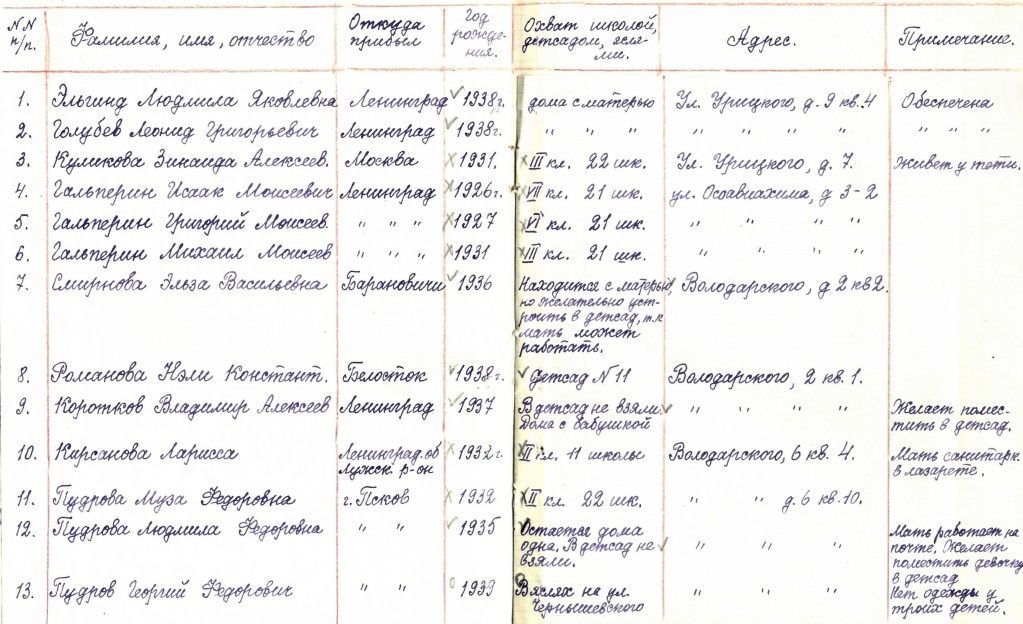 NN п/п. Фамилия, имя, отчество Откуда прибыл Год рождения. Охват школой, детсадом, яслями. Адрес. Примечание.
1. Эльгинд Людмила Яковлевна Ленинград 1938г. дома с матерью Ул. Урицкого, д. 9 кв. 4 Обеспечена
2. Голубев Леонид Григорьевич Ленинград 1938г. " " " " " " " " " "
3. Куликова Зинаида Алексеев. Москва 1931. III кл. 22 шк. Ул. Урицкого, д. 7. Живет у тети.
4. Гальперин Исаак Моисеевич Ленинград 1926г. VII кл. 21 шк. ул. Осоавиахима, д 3-2
5. Гальперин Григорий Моисеев. " " " 1927 VI кл. 21 шк. " " " "
6. Гальперин Михаил Моисеев " " " 1931 III кл. 21 шк. " " " "
7. Смирнова Эльза Васильевна Барановичи 1936 Находится с матерью, Володарского, д 2 кв 2.
но желательно уст-
роить в детсад, т.к
мать может
работать.
8. Романова Нэли Констант. Белосток 1938г. Детсад N 11 Володарского, 2 кв. 1.
9. Коротков Владимир Алексеев Ленинград 1937 В детсад не взяли. " " " " Желает помес-
Дома с бабушкой тить в детсад.
10. Кирсанова Ларисса Ленинград. об 1932г. II кл. 11 школы Володарского, 6 кв. 4. Мать санитарк.
Лужск. р-он в лазарете.
11. Пудрова Муза Федоровна г. Псков 1932 II кл. 22 шк. " " д. 6 кв-10.
12. Пудрова Людмила Федоровна " " 1935 Остается дома Мать работает на
одна. В детсад не " " " " почте. Желает
взяли. поместить девочку
в детсад
13. Пудров Георгий Федорович " " 1939 В яслях на ул. " " " " Нет одежды у
Чернышевского троих детей.